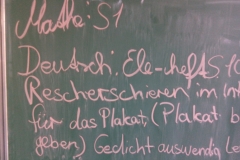 Mathe: S1
Deutsch: Ele-heft S.10
Rescherschieren im Int
für das Plakat, (Plakat b
geben) Gedicht auswendig Le